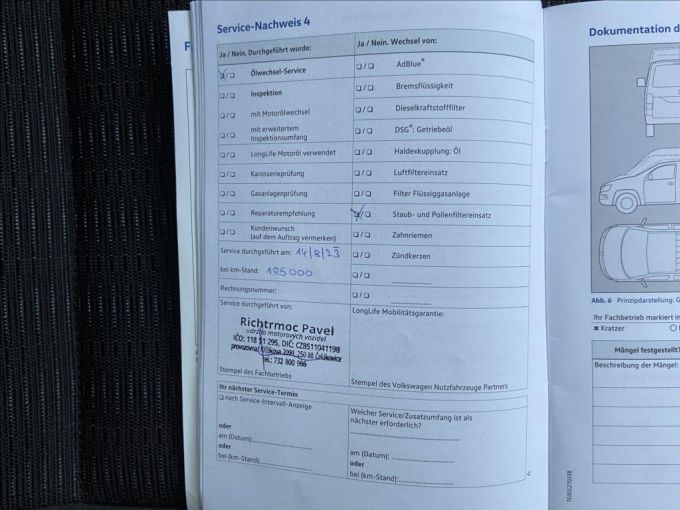 Service-Nachweis 4
Ja / Nein. Durchgeführt wurde:
Ölwechsel-Service
Inspektion
mit Motorölwechsel
mit erweitertem
Inspektionsumfang
LongLife Motoröl verwendet
Karosserieprüfung
Gasanlagenprüfung
Reparaturempfehlung
Kundenwunsch
(auf dem Auftrag vermerken)
Service durchgeführt am: 14/8/23
bei km-Stand: 185000
Rechnungsnummer:
Service durchgeführt von:
Richtrmoc Pavel
údržba motorových vozidel
IČO: 118 51 295, DIČ: CZ8511041198
provozovna: 2099, 250 88 Čelákovice
tel.: 732 800 966
Stempel des Fachbetriebs
Ja / Nein. Wechsel von:
AdBlue®
Bremsflüssigkeit
Dieselkraftstofffilter
DSG®: Getriebeöl
Haldexkupplung: Öl
Luftfiltereinsatz
Filter Flüssiggasanlage
Staub- und Pollenfiltereinsatz
Zahnriemen
Zündkerzen
LongLife Mobilitätsgarantie:
Stempel des Volkswagen Nutzfahrzeuge Partners
Ihr nächster Service-Termin
nach Service-Intervall-Anzeige
oder
am (Datum):
oder
bei (km-Stand):
Welcher Service/Zusatzumfang ist als
nächster erforderlich?
am (Datum):
oder
bei (km-Stand):
4
7E0012701SB
Dokumentation d
Abb. 6 Prinzipdarstellung: G
Ihr Fachbetrieb markiert in
Kratzer
Mängel festgestellt?
Beschreibung der Mängel:
F